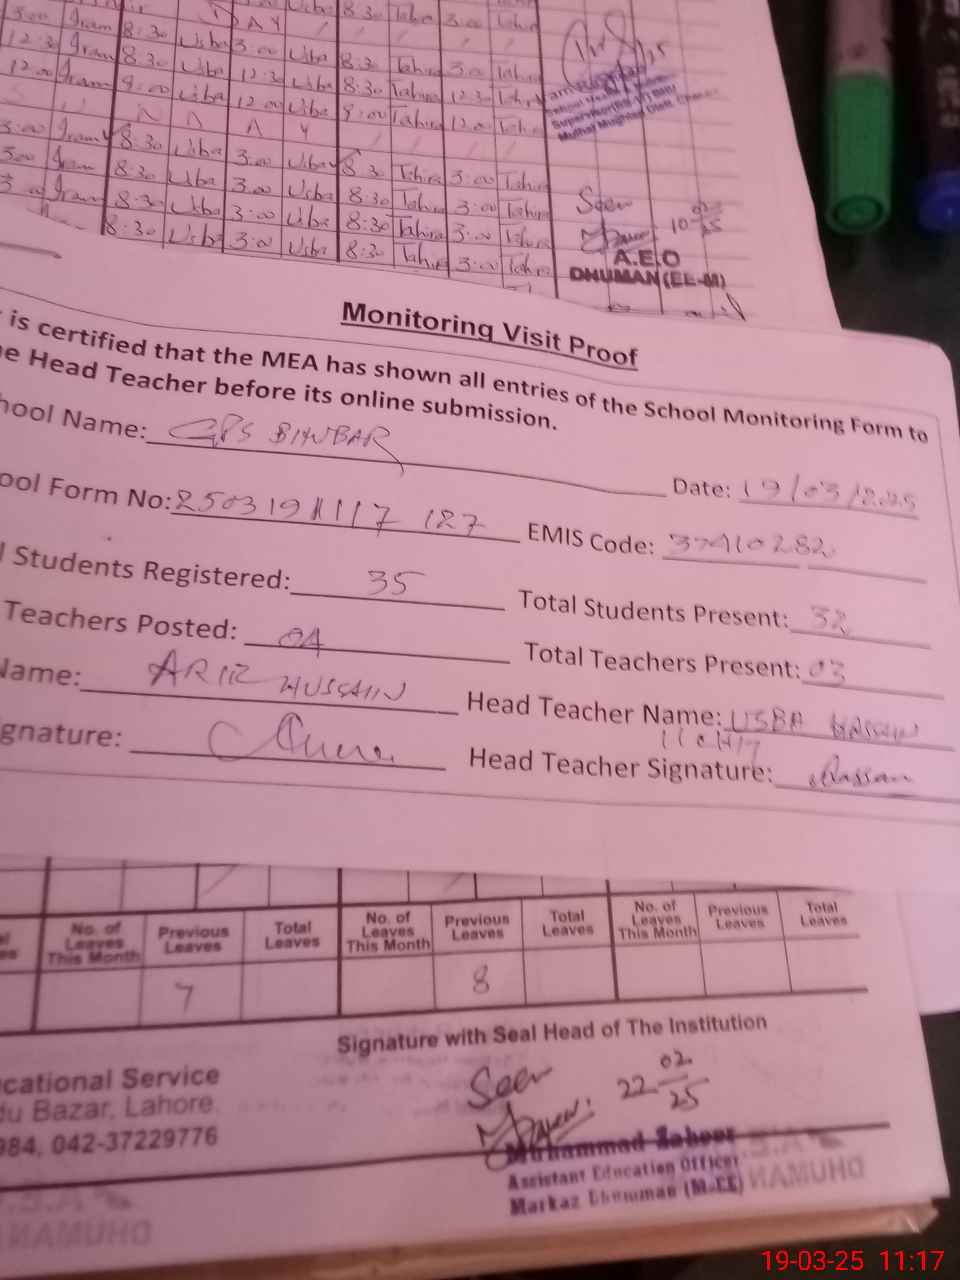 8:30 Tahira 3:00 Tahira
12:30 Iram 8:30 Usba 3:00 Usba 8:30 Tahira 3:00 Tahira
12:00 Iram 8:30 Usba 12:30 Usba 8:30 Tahira 12:30 Tahira
9:00 Usba 12:00 Usba 9:00 Tahira 12:00 Tahira
3:00 Iram 8:30 Usba 3:00 Usba 8:30 Tahira 3:00 Tahira
3:00 Iram 8:30 Usba 3:00 Usba 8:30 Tahira 3:00 Tahira
3:00 Iram 8:30 Usba 3:00 Usba 8:30 Tahira 3:00 Tahira
8:30 Usba 3:00 Usba 8:30 Tahira 3:00 Tahira
Seen
A.E.O
DHUMAN (EE-M)
Monitoring Visit Proof
is certified that the MEA has shown all entries of the School Monitoring Form to
e Head Teacher before its online submission.
hool Name: GPS BHUBAR
Date: 19/03/2025
ool Form No: EMIS Code: 37410282
l Students Registered: 35 Total Students Present: 32
Teachers Posted: 04 Total Teachers Present: 03
Name: HUSSAIN Head Teacher Name: USBA HASSAN
gnature: Head Teacher Signature: Hassan
No. of Leaves This Month Previous Leaves Total Leaves No. of Leaves This Month Previous Leaves Total Leaves No. of Leaves This Month Previous Leaves Total Leaves
7 8
Signature with Seal Head of The Institution
cational Service
du Bazar, Lahore.
984, 042-37229776
Seen 22 02 25
Muhammad Zaheer
Assistant Education Officer
Markaz Dhumman (M-EE)
19-03-25 11:17